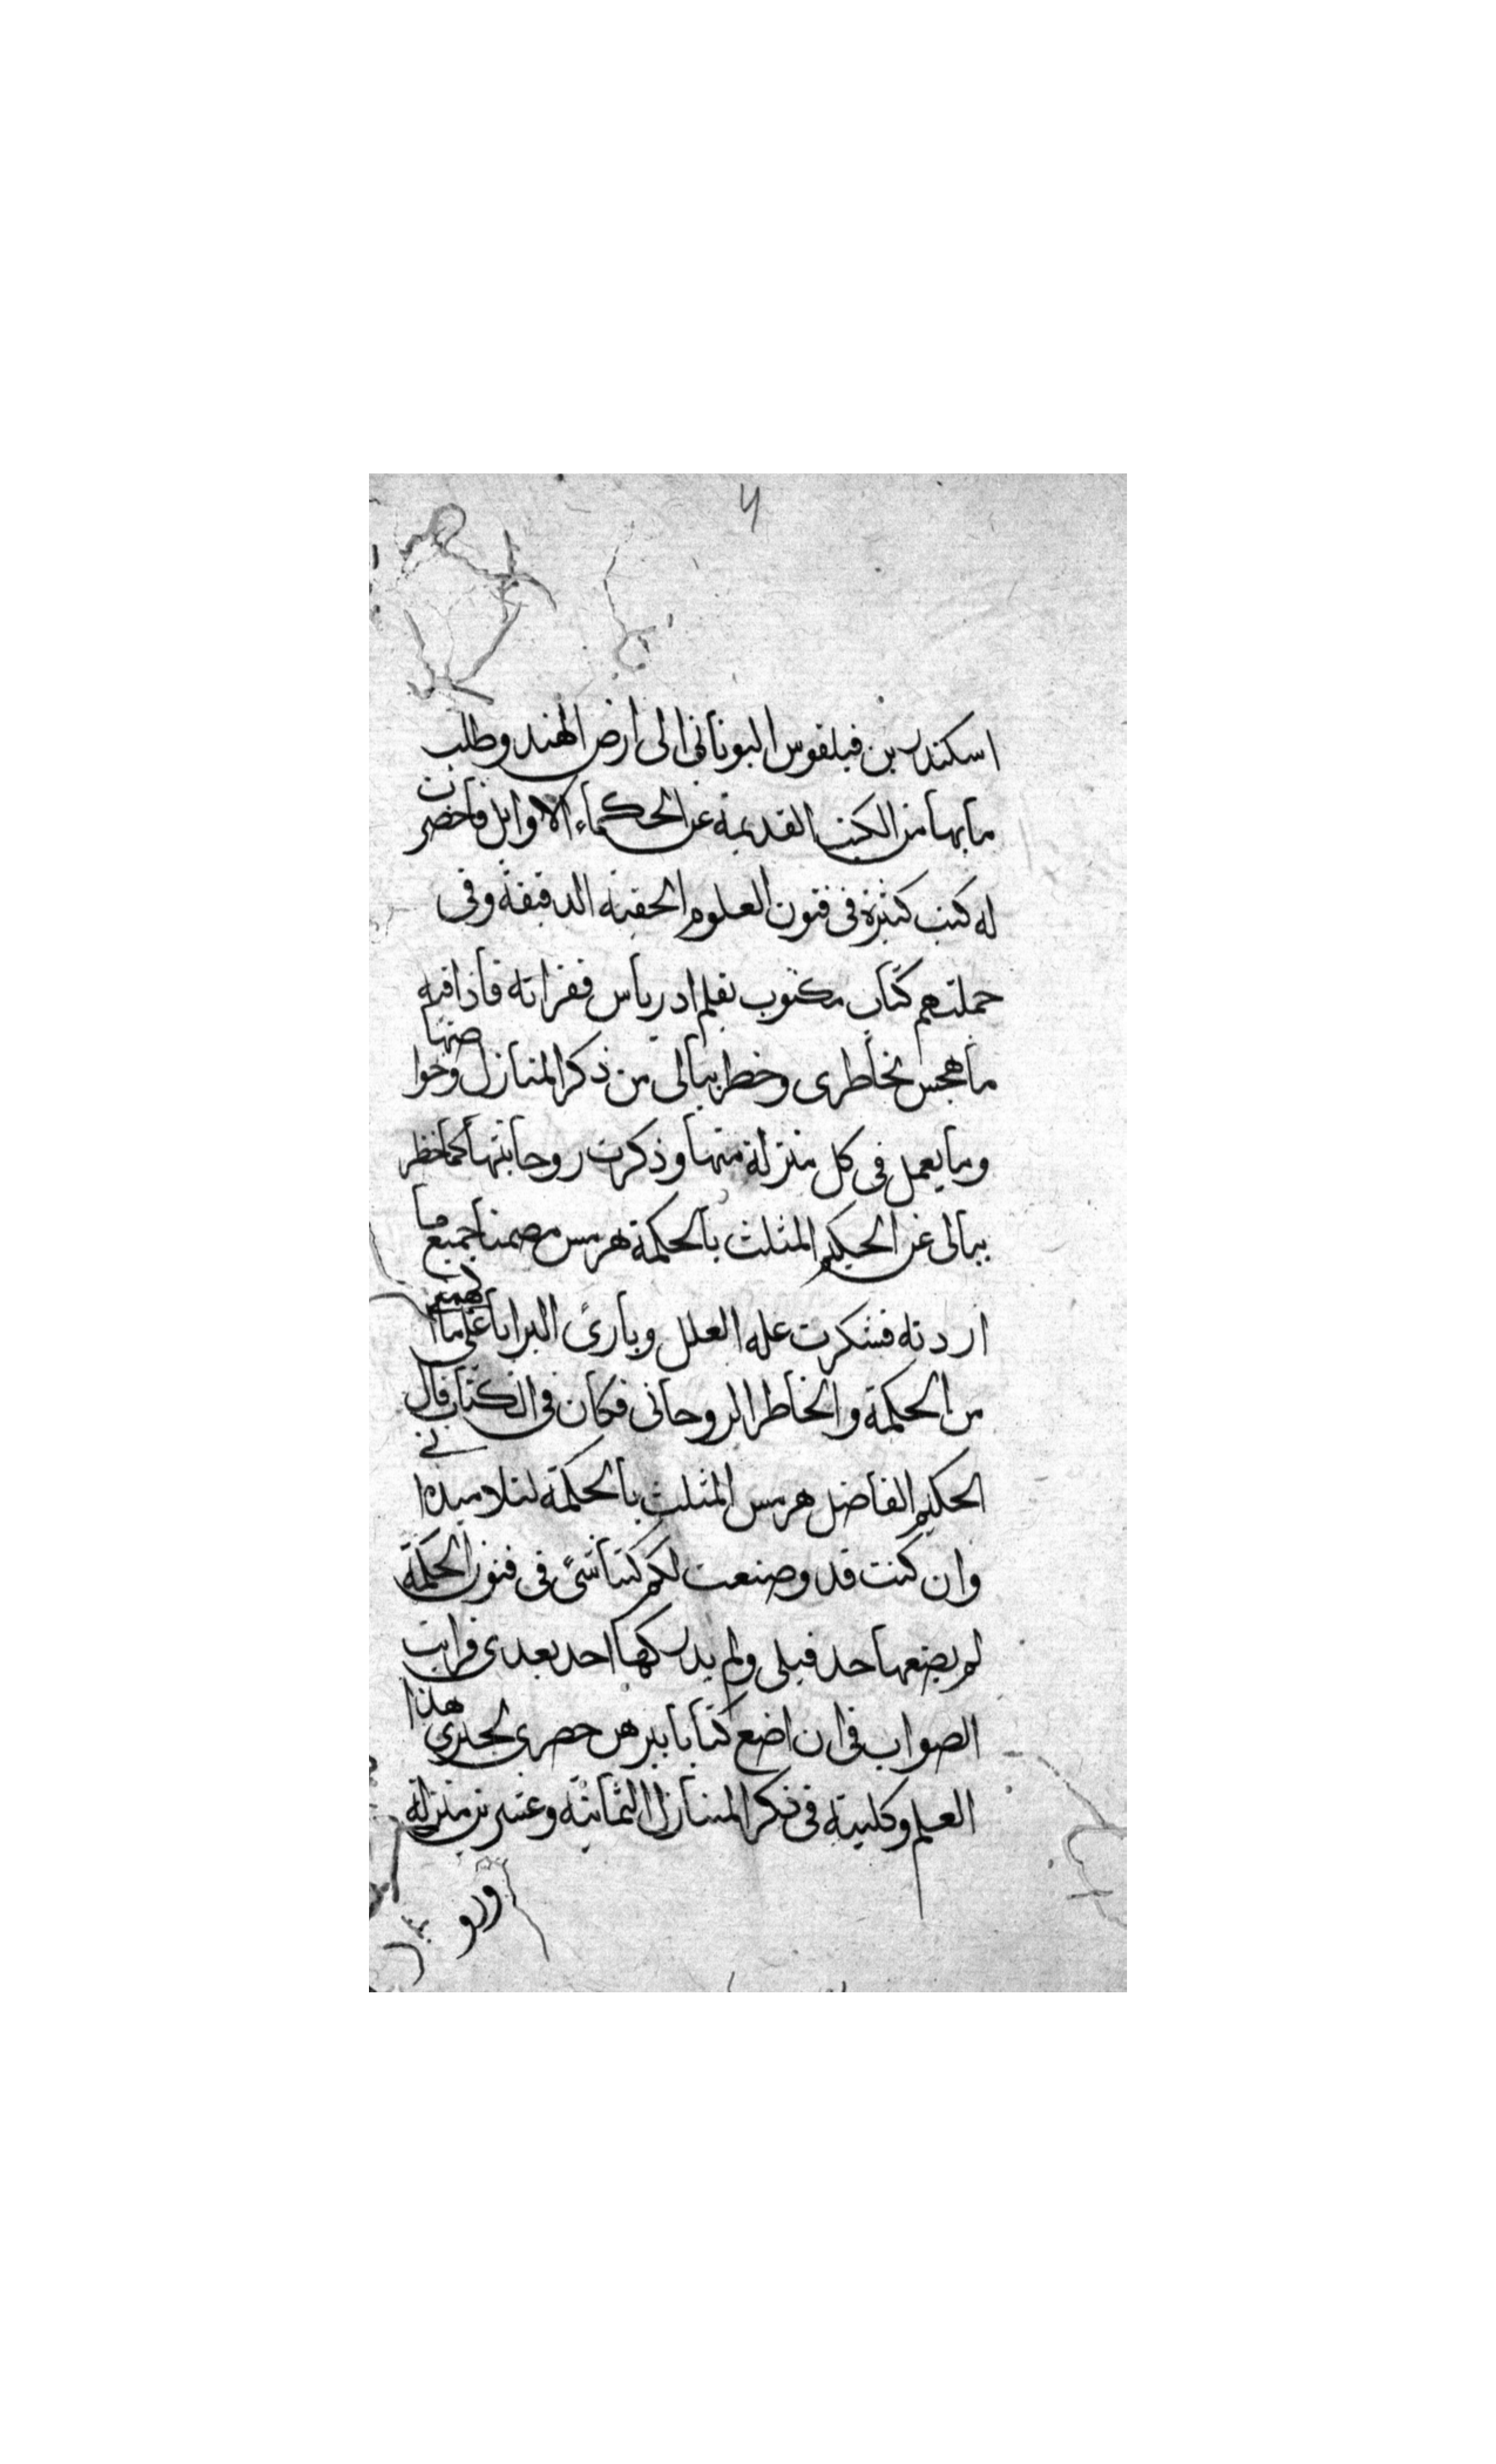 اسكندر بن فيلقوس اليوناني الى ارض الهند وطلب
ما بها من الكتب القديمة عن الحكماء الاوايل فاحضرت
له كتب كثيرة في فنون العلوم الخفية الدقيقة وفي
جملتهم كتاب مكتوب بقلم ادرياس فقراته فاذا فيه
ما هجس بخاطري وخطر ببالي من ذكر المنازل وخواصها
وما يعمل في كل منزلة منها وذكرت روحانيتها كما خطر
ببالي عن الحكيم المثلث بالحكمة هرمس مضمنا جميع ما
اردته فشكرت علة العلل وبارئ البرايا على ما الهمني
من الحكمة والخاطر الروحاني فكان في الكتاب قال
الحكيم الفاضل هرمس المثلث بالحكمة لتلاميذه اني
وان كنت قد وضعت لكم كتبا شئ في فنون الحكمة
لم يضعها حد قبلي ولم يدركها احد بعدي فرايت
الصواب في ان اضع كتابا هذا
العلم وكليته في ذكر المنازل الثمانية وعشرين منزلة